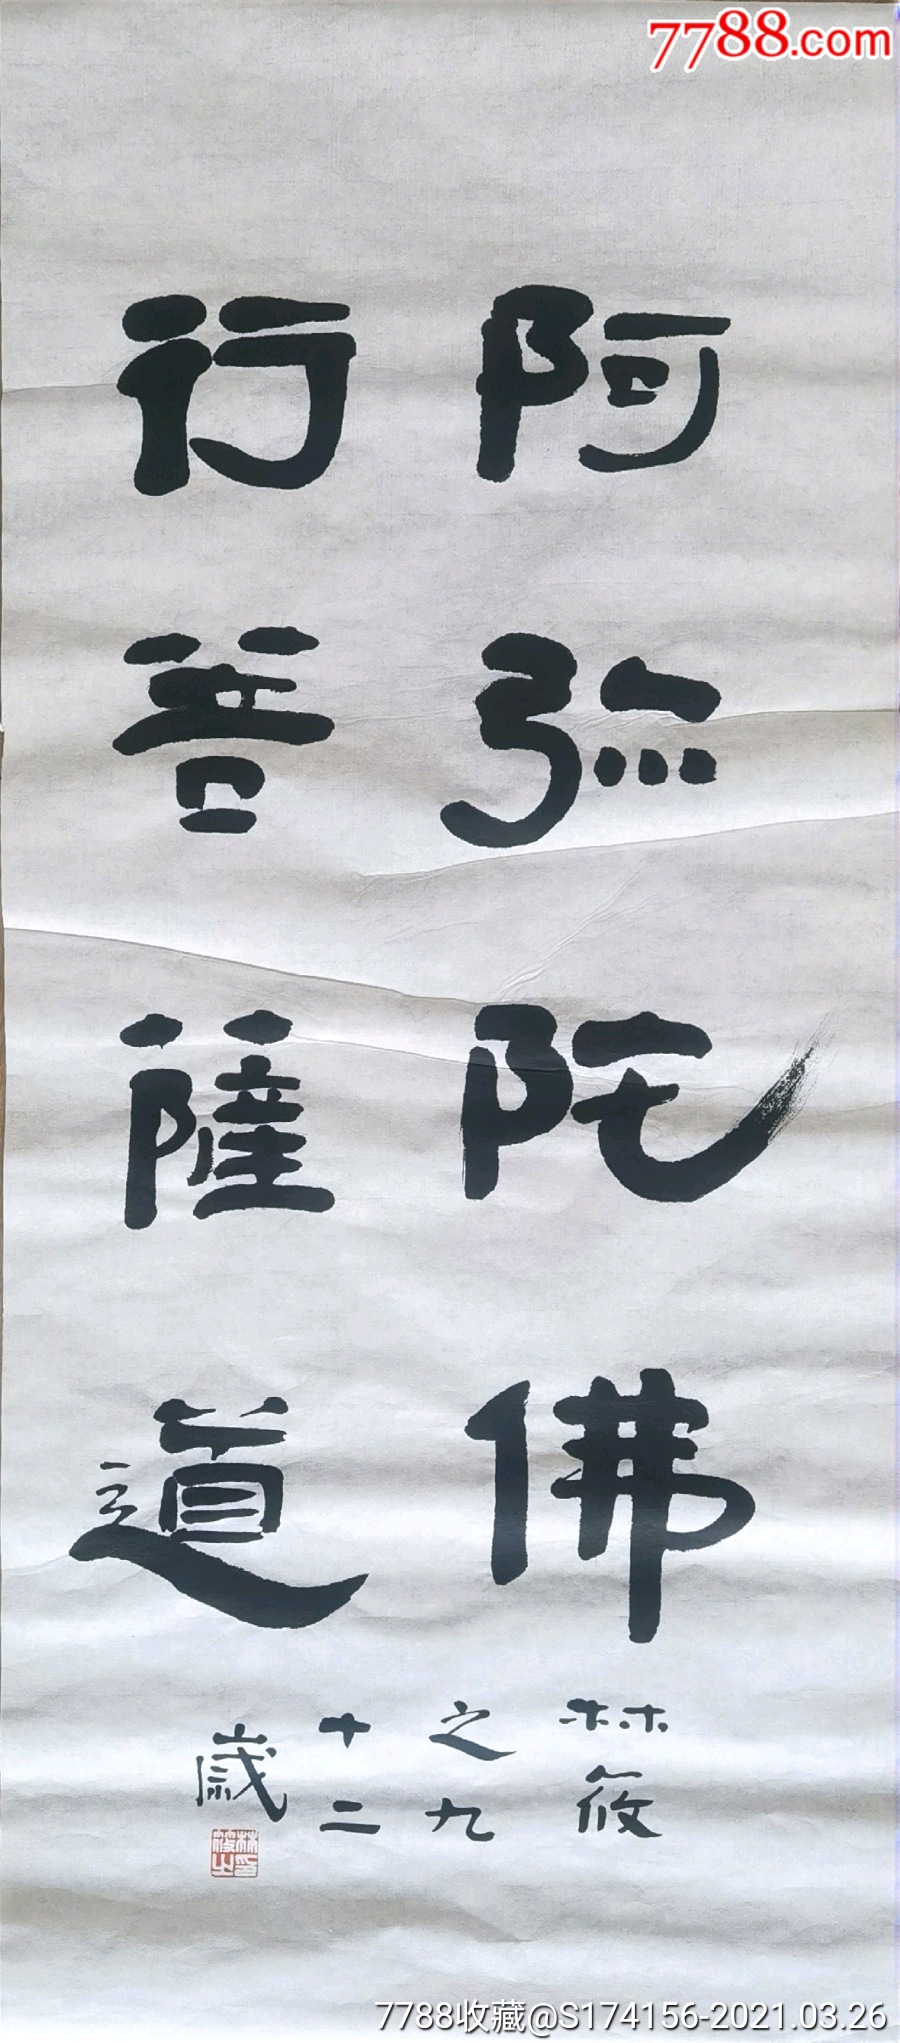 7788.com
阿弥陀佛
行善薩道
林筱
之九
十二
歲
林筱之印
7788收藏@S174156-2021.03.26